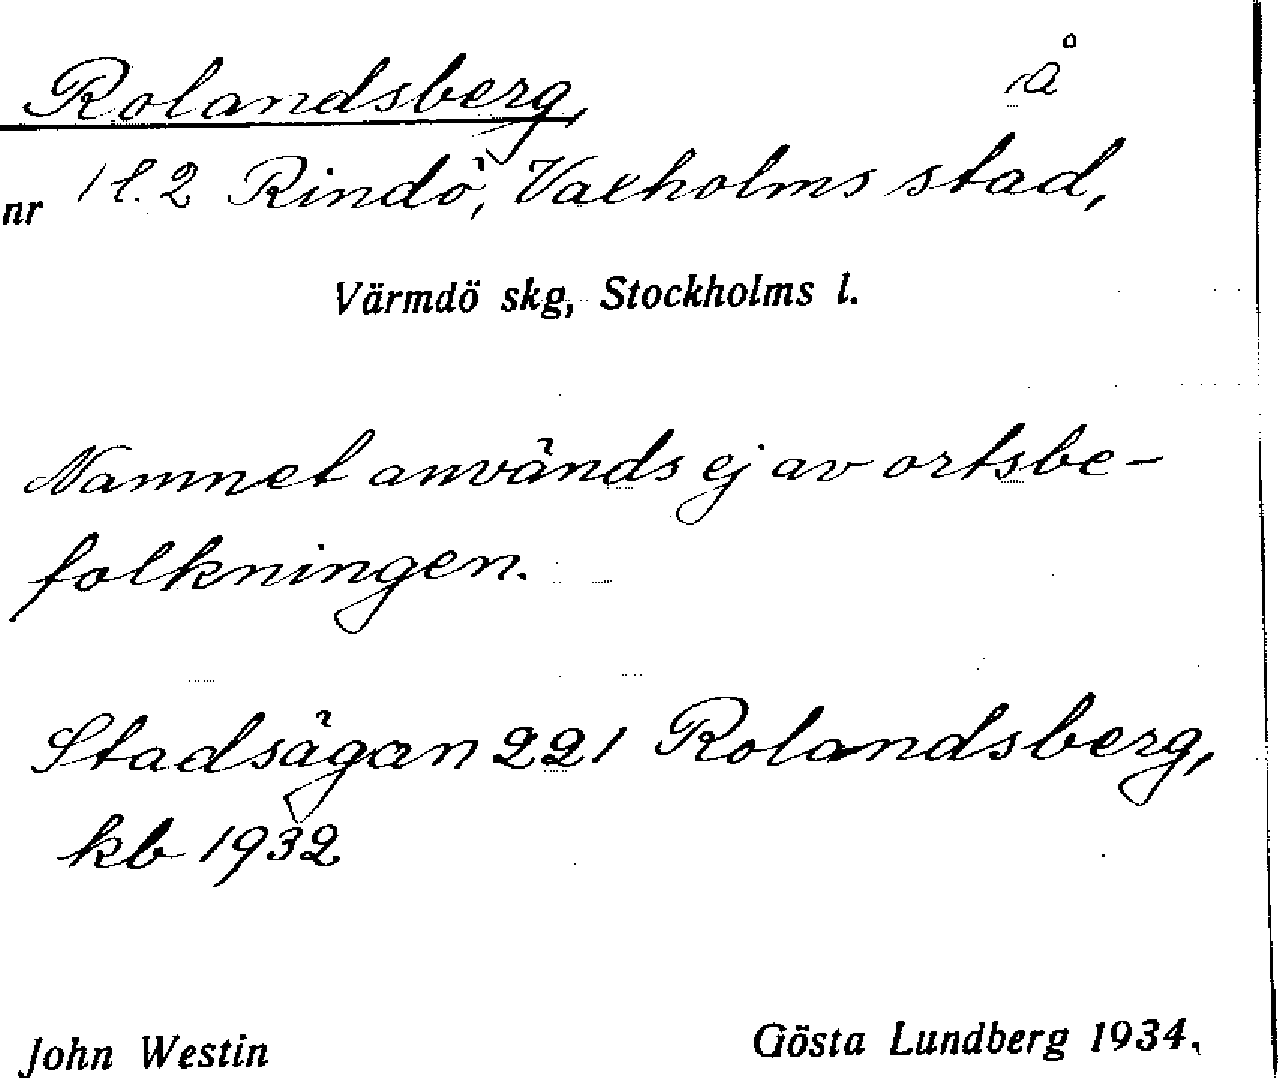 Rolandsberg, å
nr 1 l. 2 Rindö, Vaxholms stad,
Värmdö skg, Stockholms l.
Namnet används ej av ortsbe-
folkningen.
Stadsägan 221 Rolandsberg,
kb 1932
John Westin Gösta Lundberg 1934.